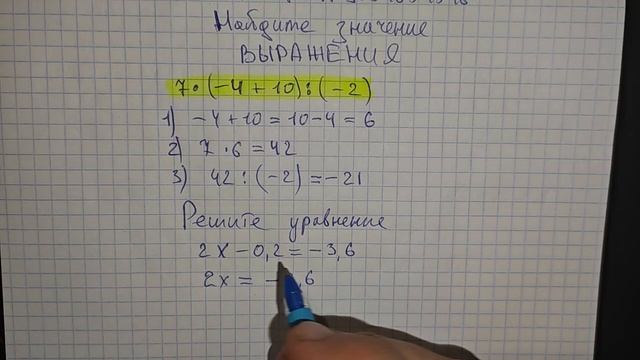 Найдите значение
ВЫРАЖЕНИЯ
7·(-4+10):(-2)
1) -4+10=10-4=6
2) 7·6=42
3) 42:(-2)=-21
Решите уравнение
2x-0,2=-3,6
2x= - ,6